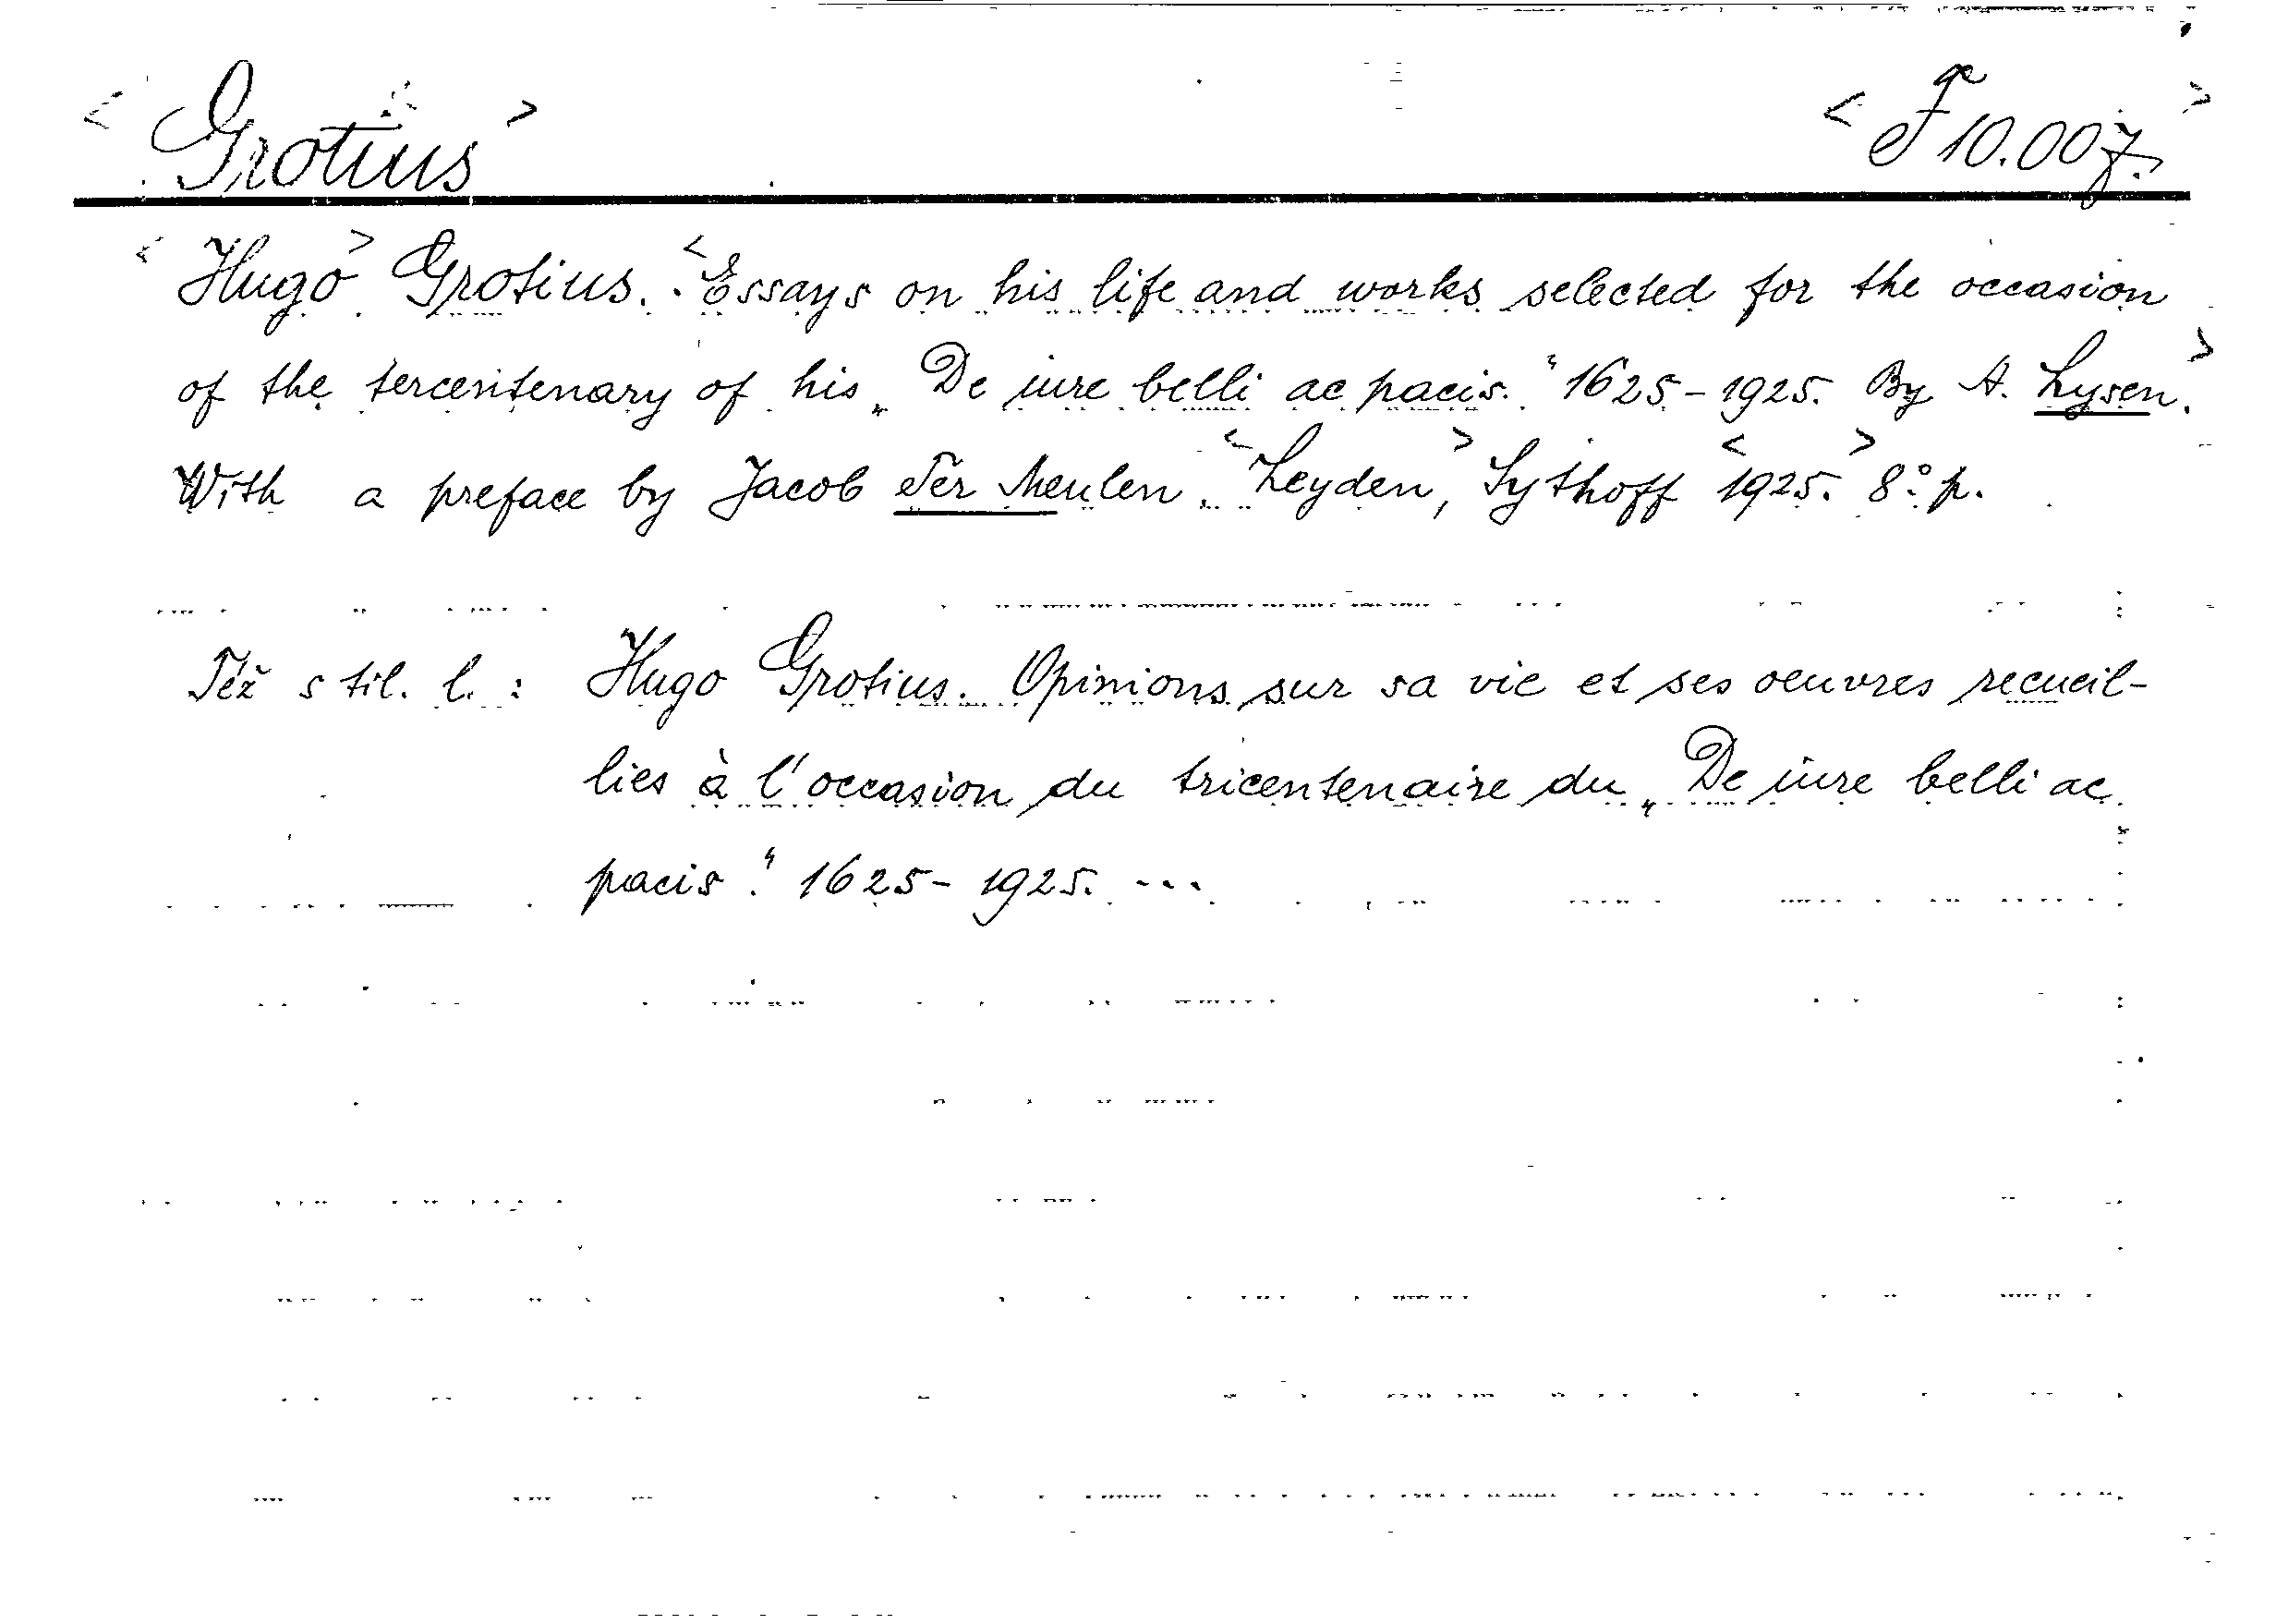 <Grotius> <F 10.007.>
<Hugo> Grotius. <Essays on his life and works selected for the occasion
of the tercentenary of his „De iure belli ac pacis.“ 1625-1925. By A. Lysen.>
With a preface by Jacob Ter Meulen. <Leyden,> Sythoff <1925.> 8° p.
Též s tit. l.: Hugo Grotius. Opinions sur sa vie et ses oeuvres recueil-
lies à l'occasion du tricentenaire du „De iure belli ac
pacis.“ 1625-1925. ...